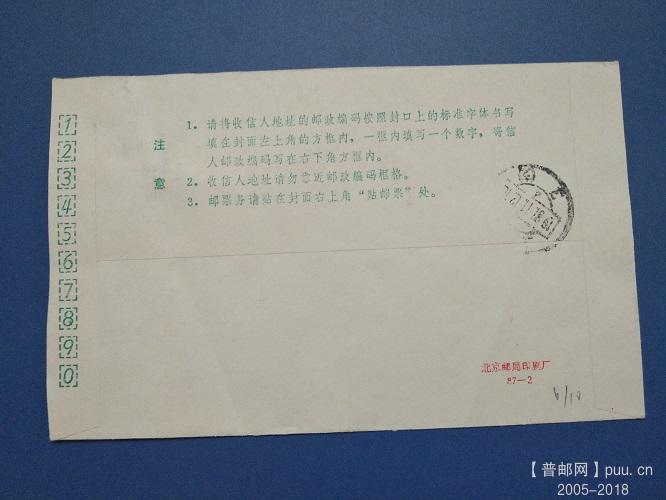 1
2
3
4
5
6
7
8
9
0
注意
1. 请将收信人地址的邮政编码按照封口上的标准字体书写
填在封面左上角的方框内，一框内填写一个数字，寄信
人邮政编码写在右下角方框内。
2. 收信人地址请勿靠近邮政编码框格。
3. 邮票务请贴在封面右上角“贴邮票”处。
北京邮局印刷厂
87—2
6/10
【普邮网】puu.cn
2005-2018